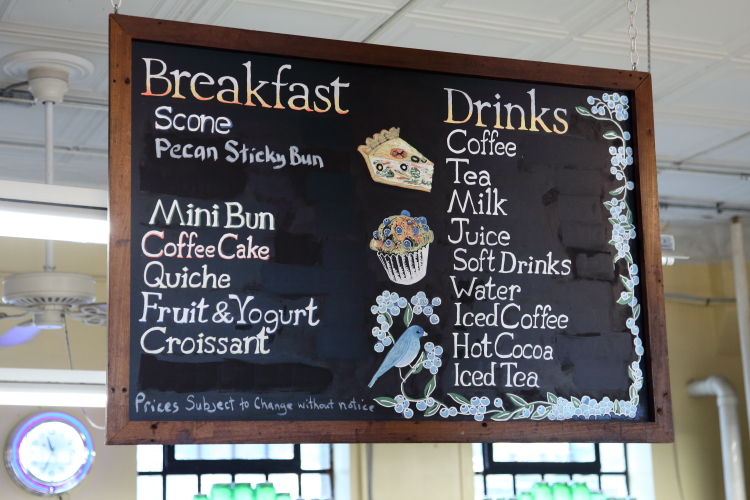 Breakfast
Scone
Pecan Sticky Bun
Mini Bun
Coffee Cake
Quiche
Fruit & Yogurt
Croissant
Prices Subject to Change without notice
Drinks
Coffee
Tea
Milk
Juice
Soft Drinks
Water
Iced Coffee
Hot Cocoa
Iced Tea